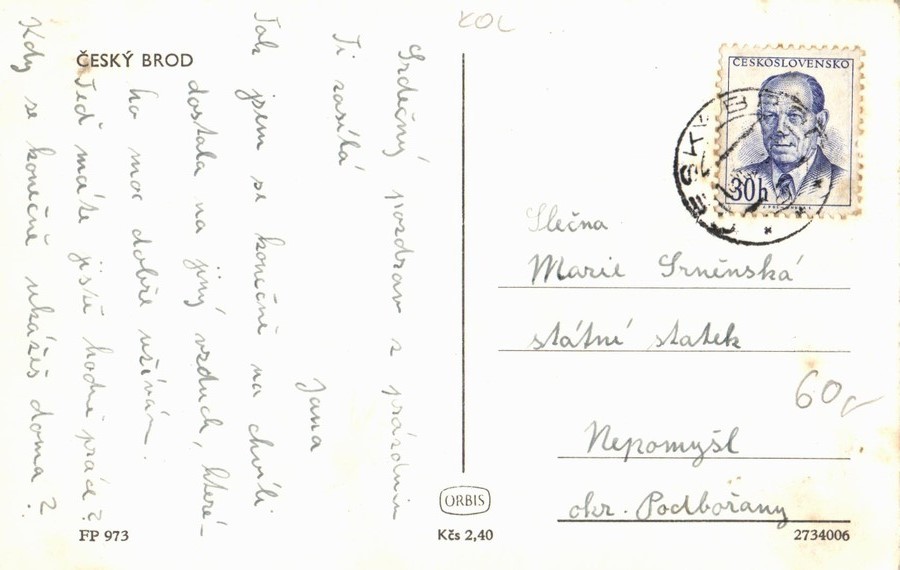 KOL
ČESKÝ BROD
Srdečný pozdrav z prázdnin
Ti zasílá
Jana
Tak jsem se konečně na chvíli
dostala na jiný vzduch, které-
ho moc dobře užívám.
Teď máte jistě hodně práce?
Kdy se konečně ukážeš doma?
ČESKOSLOVENSKO
30h
Slečna
Marie Srněnská
státní statek
60,-
Nepomyšl
okr. Podbořany
ORBIS
FP 973
Kčs 2,40
2734006